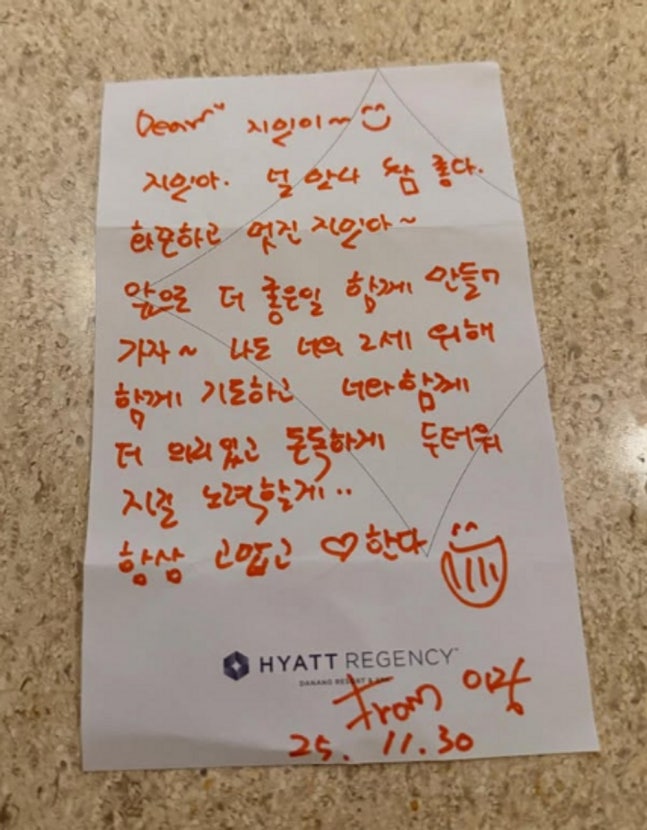 Dear" 지인이~
지인아. 널 안나 참 좋다.
화끈하고 멋진 지인아~
앞으로 더 좋은일 함께 만들어
가자~ 나도 너의 2세 위해
함께 기도하고 너와 함께
더 의리있고 돈독하게 두터워
지길 노력할게..
항상 고맙고 ♡한다
HYATT REGENCY™
DANANG RESORT & SPA
From 이랑
25. 11.30